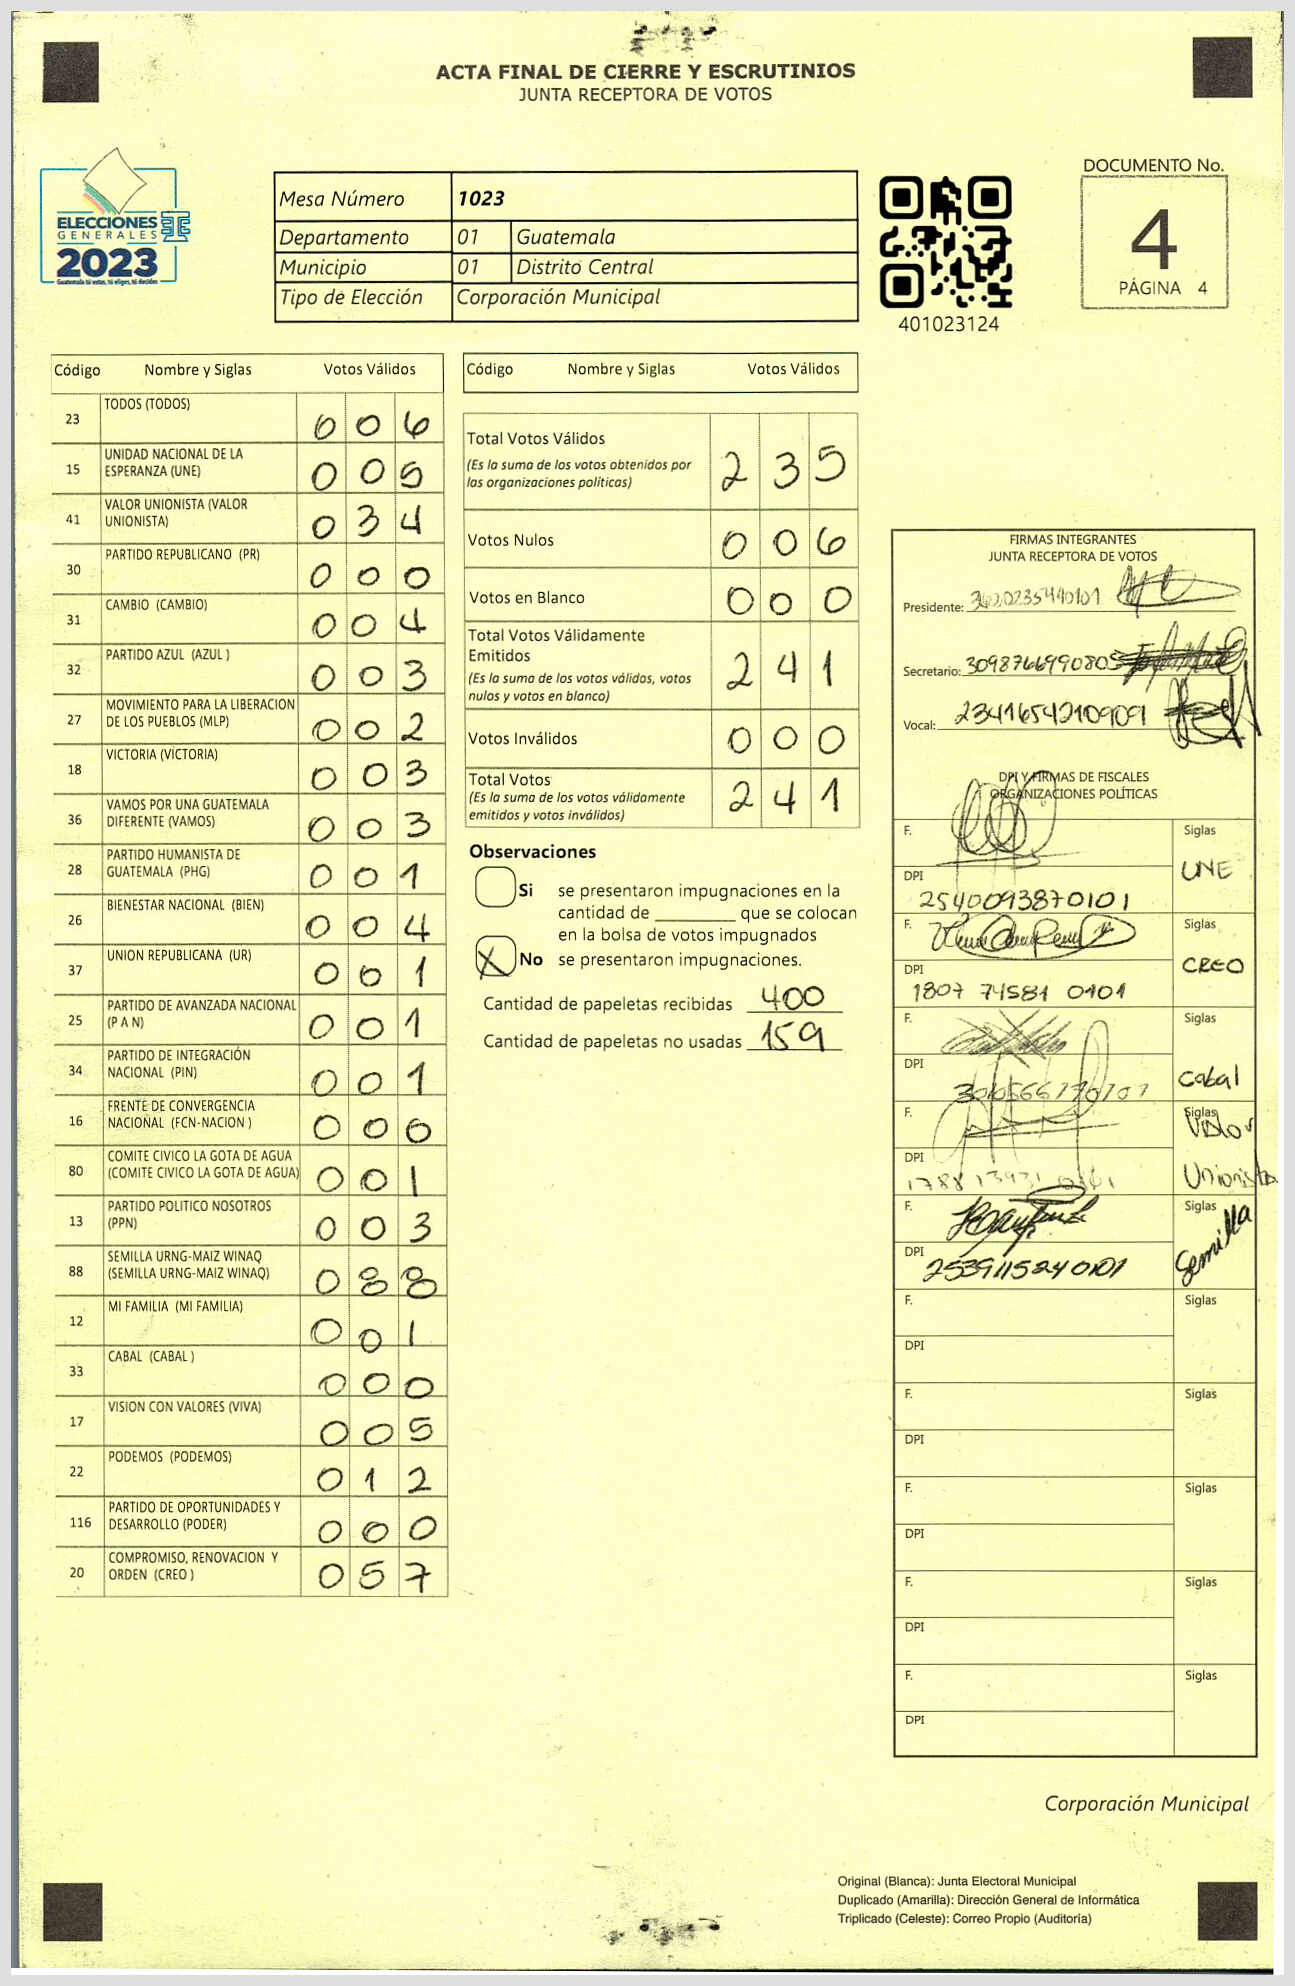 ACTA FINAL DE CIERRE Y ESCRUTINIOS
JUNTA RECEPTORA DE VOTOS
ELECCIONES
GENERALES
2023
Guatemala tú votas, tú eliges, tú decides
Mesa Número 1023
Departamento 01 Guatemala
Municipio 01 Distrito Central
Tipo de Elección Corporación Municipal
401023124
DOCUMENTO No.
4
PÁGINA 4
Código Nombre y Siglas Votos Válidos
23 TODOS (TODOS) 0 0 6
15 UNIDAD NACIONAL DE LA
ESPERANZA (UNE) 0 0 5
41 VALOR UNIONISTA (VALOR
UNIONISTA) 0 3 4
30 PARTIDO REPUBLICANO (PR) 0 0 0
31 CAMBIO (CAMBIO) 0 0 4
32 PARTIDO AZUL (AZUL ) 0 0 3
27 MOVIMIENTO PARA LA LIBERACION
DE LOS PUEBLOS (MLP) 0 0 2
18 VICTORIA (VICTORIA) 0 0 3
36 VAMOS POR UNA GUATEMALA
DIFERENTE (VAMOS) 0 0 3
28 PARTIDO HUMANISTA DE
GUATEMALA (PHG) 0 0 1
26 BIENESTAR NACIONAL (BIEN) 0 0 4
37 UNION REPUBLICANA (UR) 0 0 1
25 PARTIDO DE AVANZADA NACIONAL
(P A N) 0 0 1
34 PARTIDO DE INTEGRACIÓN
NACIONAL (PIN) 0 0 1
16 FRENTE DE CONVERGENCIA
NACIONAL (FCN-NACION ) 0 0 0
80 COMITE CIVICO LA GOTA DE AGUA
(COMITE CIVICO LA GOTA DE AGUA) 0 0 1
13 PARTIDO POLITICO NOSOTROS
(PPN) 0 0 3
88 SEMILLA URNG-MAIZ WINAQ
(SEMILLA URNG-MAIZ WINAQ) 0 8 8
12 MI FAMILIA (MI FAMILIA) 0 0 1
33 CABAL (CABAL ) 0 0 0
17 VISION CON VALORES (VIVA) 0 0 5
22 PODEMOS (PODEMOS) 0 1 2
116 PARTIDO DE OPORTUNIDADES Y
DESARROLLO (PODER) 0 0 0
20 COMPROMISO, RENOVACION Y
ORDEN (CREO ) 0 5 7
Código Nombre y Siglas Votos Válidos
Total Votos Válidos 2 3 5
(Es la suma de los votos obtenidos por
las organizaciones políticas)
Votos Nulos 0 0 6
Votos en Blanco 0 0 0
Total Votos Válidamente
Emitidos 2 4 1
(Es la suma de los votos válidos, votos
nulos y votos en blanco)
Votos Inválidos 0 0 0
Total Votos 2 4 1
(Es la suma de los votos válidamente
emitidos y votos inválidos)
Observaciones
Si se presentaron impugnaciones en la
cantidad de ________ que se colocan
en la bolsa de votos impugnados
X No se presentaron impugnaciones.
Cantidad de papeletas recibidas 400
Cantidad de papeletas no usadas 159
FIRMAS INTEGRANTES
JUNTA RECEPTORA DE VOTOS
Presidente:
Secretario: 3098766990805
Vocal: 2341654210909
DPI Y FIRMAS DE FISCALES
ORGANIZACIONES POLÍTICAS
F. Siglas
UNE
DPI
2540093870101
F. Siglas
CREO
DPI
1807 74581 0101
F. Siglas
Cabal
DPI
F. Siglas
Valor
Unionista
DPI
F. Siglas
Semilla
DPI
2539115240101
F. Siglas
DPI
F. Siglas
DPI
F. Siglas
DPI
F. Siglas
DPI
F. Siglas
DPI
Corporación Municipal
Original (Blanca): Junta Electoral Municipal
Duplicado (Amarilla): Dirección General de Informática
Triplicado (Celeste): Correo Propio (Auditoría)